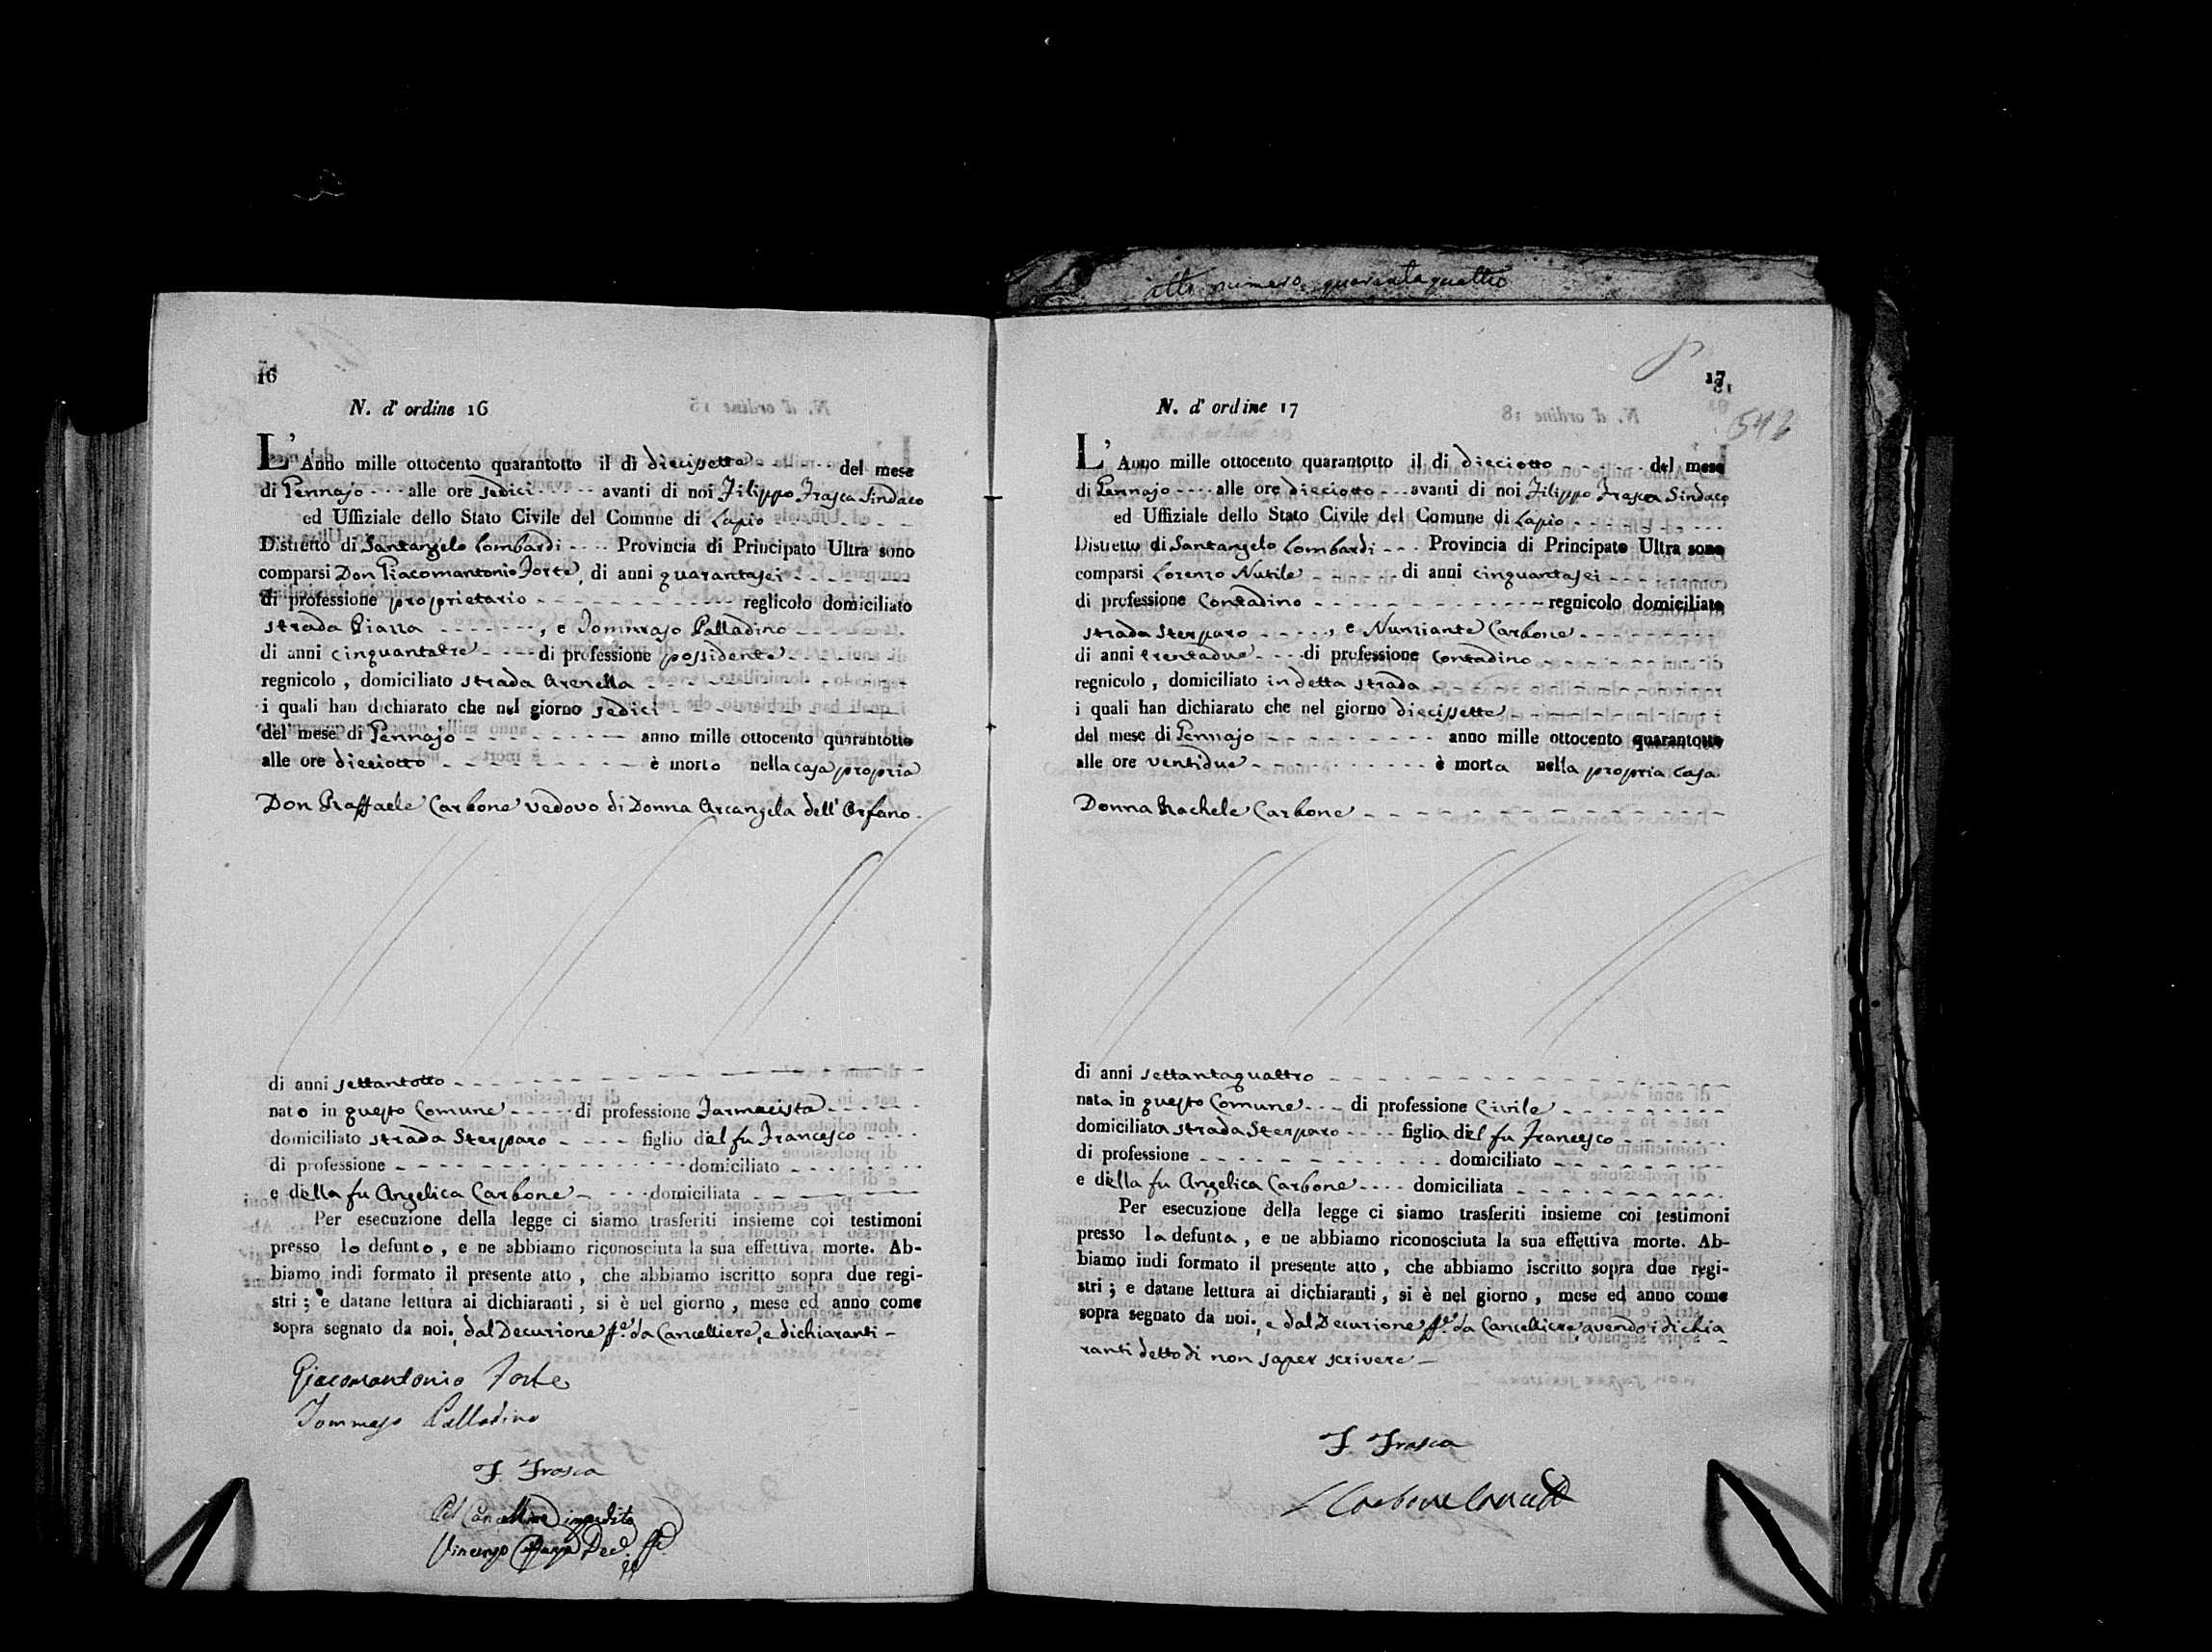 atto numero quarantaquattro
16
N. d' ordine 16
L' Anno mille ottocento quarantotto il dì diecissette del mese
di Gennajo alle ore sedici avanti di noi Filippo Frasca Sindaco
ed Uffiziale dello Stato Civile del Comune di Lapio
Distretto di Santangelo Lombardi Provincia di Principato Ultra sono
comparsi Don Giacomantonio Forte, di anni quarantasei
di professione proprietario reglicolo domiciliato
strada Piazza , e Tommaso Palladino
di anni cinquantatre di professione possidente
regnicolo , domiciliato strada Arenella
i quali han dichiarato che nel giorno sedici
del mese di Gennajo anno mille ottocento quarantotto
alle ore dieciotto è morto nella casa propria
Don Raffaele Carbone vedovo di Donna Arcangela dell' Orfano
di anni settantotto
nato in questo Comune di professione Farmacista
domiciliato strada Sterparo figlio del fu Francesco
di professione domiciliato
e della fu Angelica Carbone domiciliata
Per esecuzione della legge ci siamo trasferiti insieme coi testimoni
presso lo defunto , e ne abbiamo riconosciuta la sua effettiva morte. Ab-
biamo indi formato il presente atto , che abbiamo iscritto sopra due regi-
stri ; e datane lettura ai dichiaranti , si è nel giorno , mese ed anno come
sopra segnato da noi, dal Decurione ff. da Cancelliere, e dichiaranti -
Giacomantonio Forte
Tommaso Palladino
F. Frasca
Pel Cancelliere impedito
Vincenzo Dec. ff.
17
542
N. d' ordine 17
L' Anno mille ottocento quarantotto il dì dieciotto del mese
di Gennajo alle ore dieciotto avanti di noi Filippo Frasca Sindaco
ed Uffiziale dello Stato Civile del Comune di Lapio
Distretto di Santangelo Lombardi Provincia di Principato Ultra sono
comparsi Lorenzo Nutile di anni cinquantasei
di professione Contadino regnicolo domiciliato
strada Sterparo , e Nunziante Carbone
di anni trentadue di professione Contadino
regnicolo , domiciliato in detta strada
i quali han dichiarato che nel giorno diecissette
del mese di Gennajo anno mille ottocento quarantotto
alle ore ventidue è morta nella propria casa
Donna Rachele Carbone
di anni settantaquattro
nata in questo Comune di professione Civile
domiciliata strada Sterparo figlia del fu Francesco
di professione domiciliato
e della fu Angelica Carbone domiciliata
Per esecuzione della legge ci siamo trasferiti insieme coi testimoni
presso la defunta , e ne abbiamo riconosciuta la sua effettiva morte. Ab-
biamo indi formato il presente atto , che abbiamo iscritto sopra due regi-
stri ; e datane lettura ai dichiaranti , si è nel giorno , mese ed anno come
sopra segnato da noi, e dal Decurione ff. da Cancelliere, avendo i dichia
ranti detto di non saper scrivere -
F. Frasca
Carbone